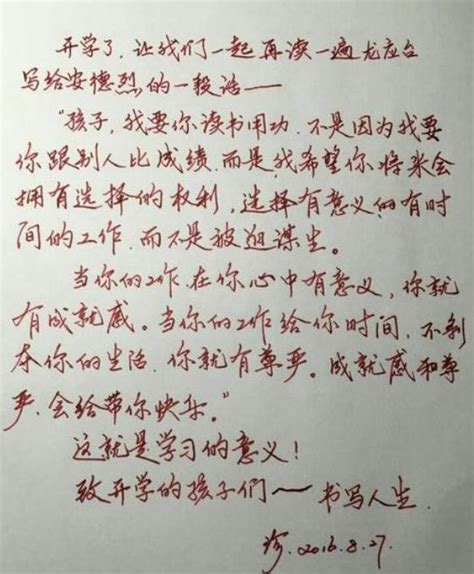 开学了,让我们一起再读一遍龙应台
写给安德烈的一段话——
“孩子,我要你读书用功.不是因为我要
你跟别人比成绩.而是,我希望你将来会
拥有选择的权利,选择有意义的有时
间的工作.而不是被迫谋生。
当你的工作在你心中有意义,你就
有成就感。当你的工作给你时间,不剥
夺你的生活.你就有尊严。成就感和尊
严,会给带你快乐。”
这就是学习的意义!
致开学的孩子们——书写人生.
2016.8.27.